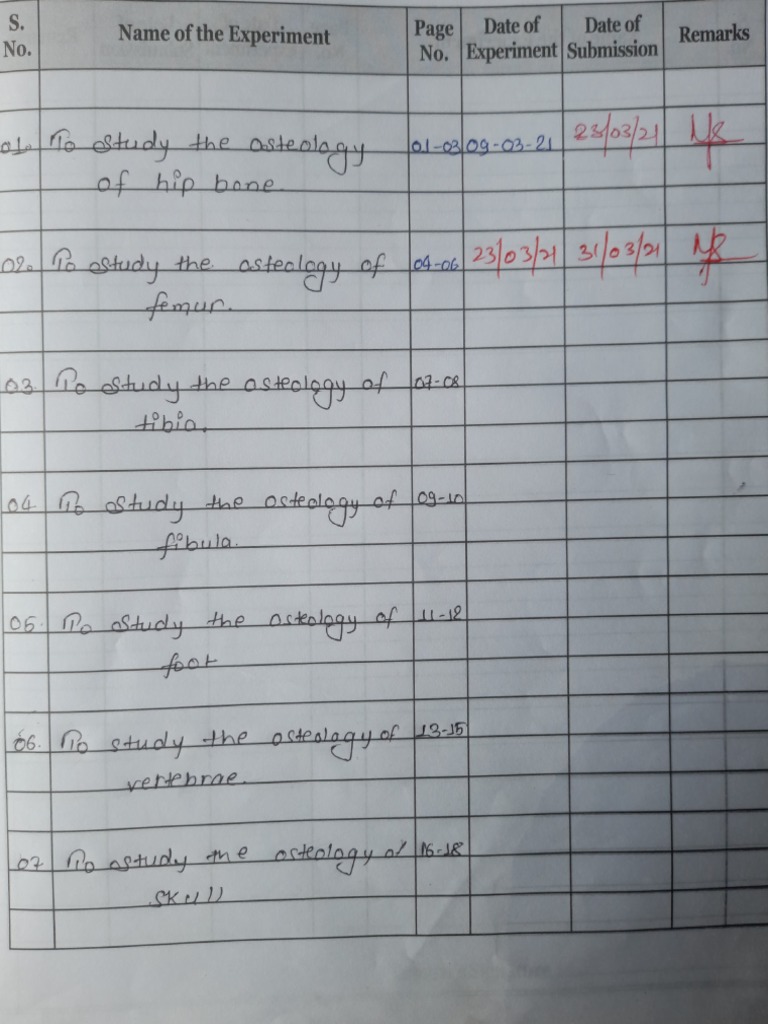 S. No. Name of the Experiment Page No. Date of Experiment Date of Submission Remarks
01. To study the osteology 01-03 09-03-21 23/03/21
of hip bone
02. To study the osteology of 04-06 23/03/21 31/03/21
femur.
03. To study the osteology of 07-08
tibia.
04. To study the osteology of 09-10
fibula.
05. To study the osteology of 11-12
foot
06. To study the osteology of 13-15
vertebrae.
07 To study the osteology of 16-18
skull